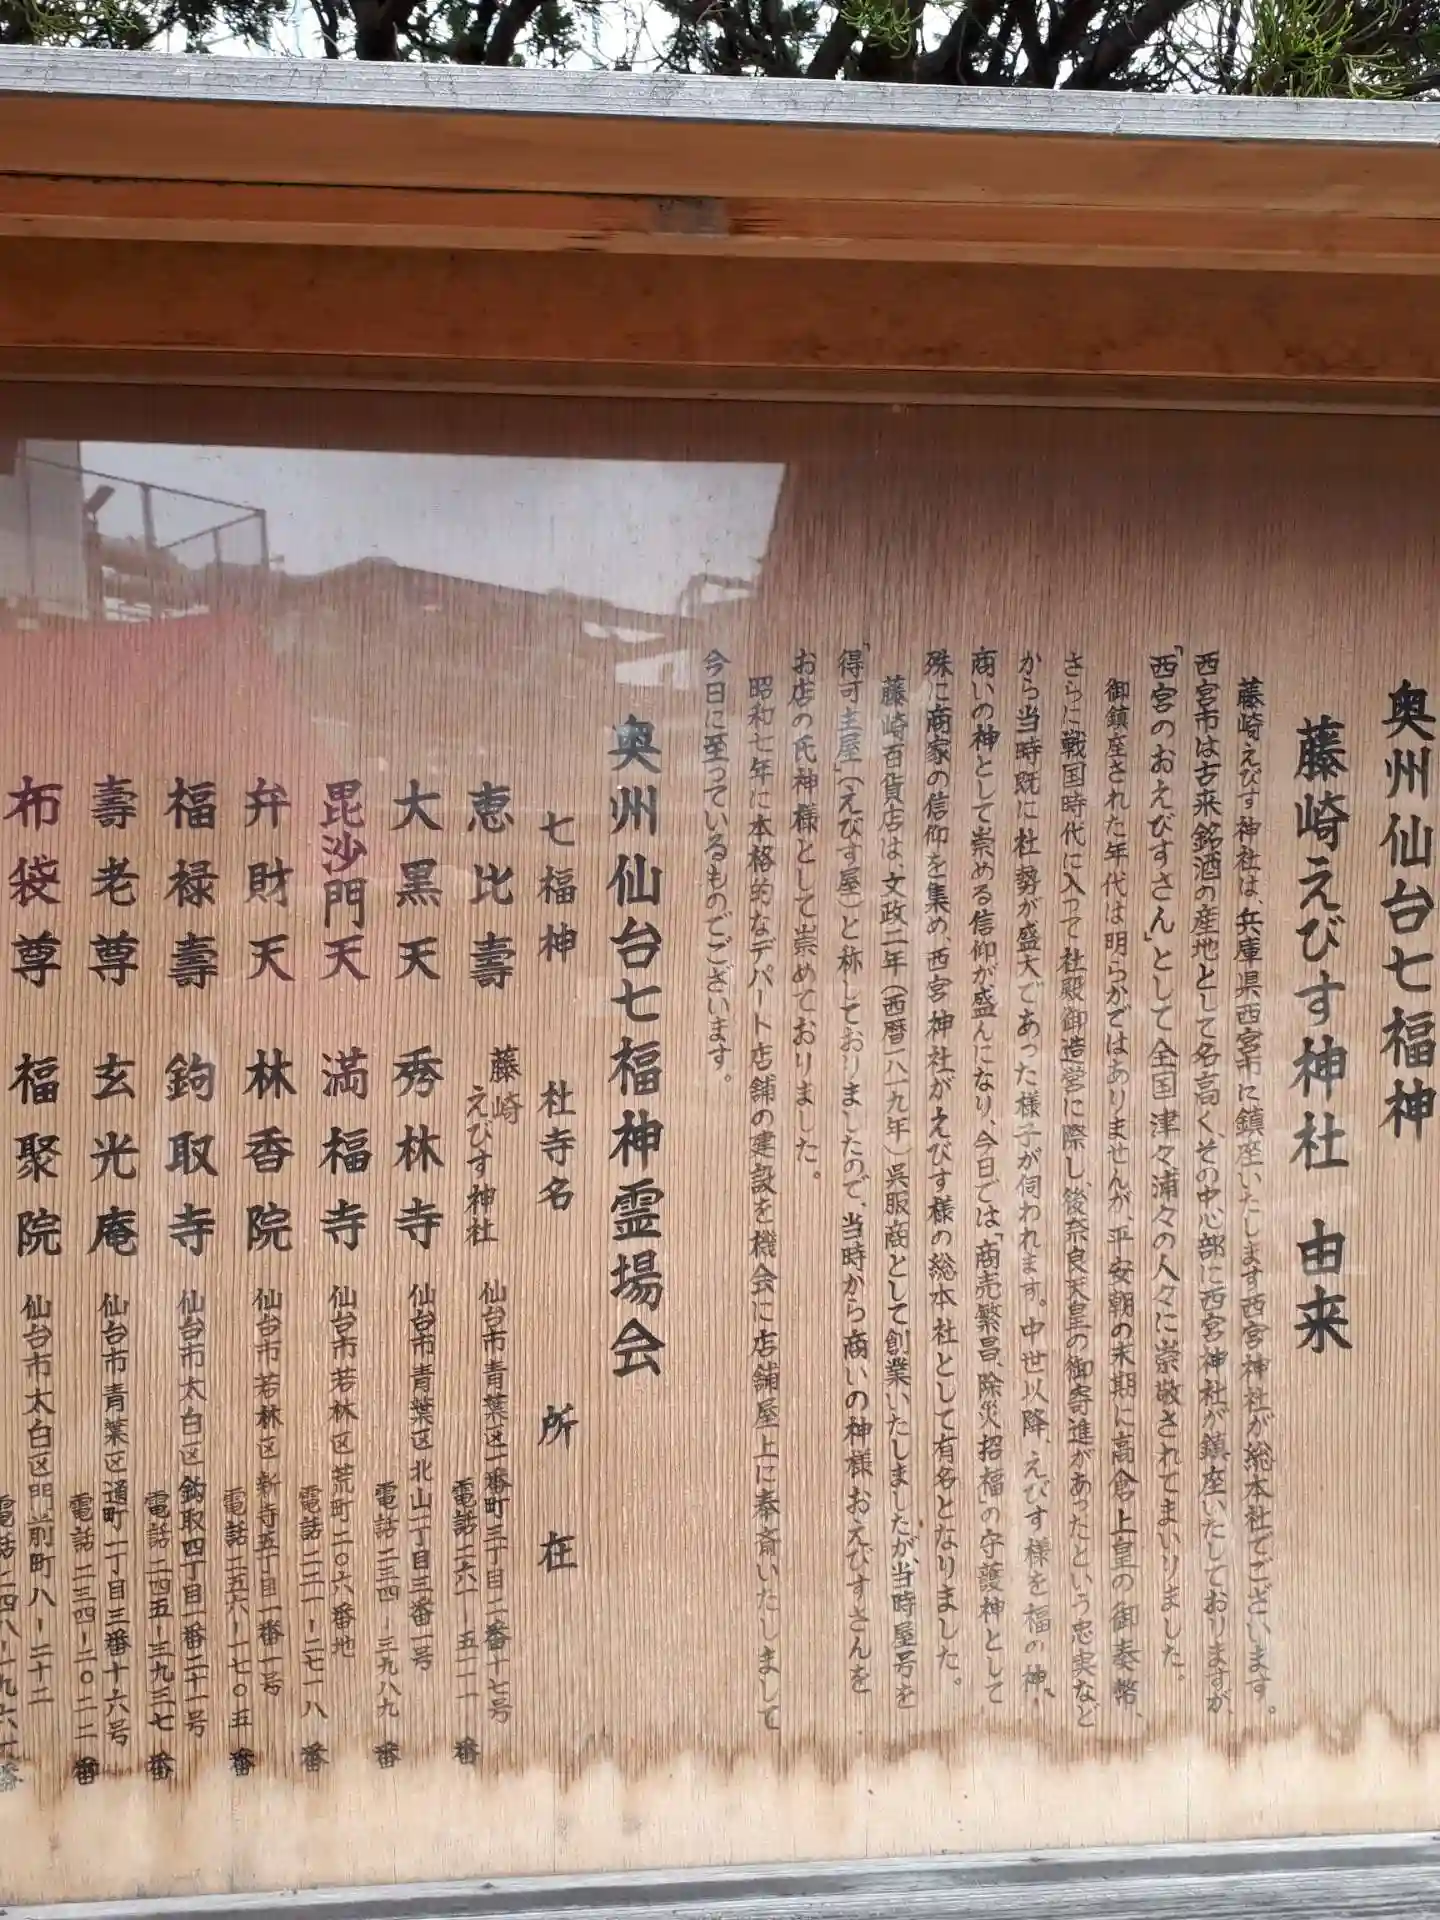 奥州仙台七福神
藤崎えびす神社 由来
藤崎えびす神社は、兵庫県西宮市に鎮座いたします西宮神社が総本社でございます。
西宮市は古来銘酒の産地として名高く、その中心部に西宮神社が鎮座いたしておりますが、
「西宮のおえびすさん」として全国津々浦々の人々に崇敬されてまいりました。
御鎮座された年代は明らかではありませんが、平安朝の末期に高倉上皇の御奏幣、
さらに戦国時代に入って社殿御造営に際し、後奈良天皇の御寄進があったという忠実など
から当時既に社勢が盛大であった様子が伺われます。中世以降、えびす様を福の神・
商いの神として崇める信仰が盛んになり、今日では「商売繁昌、除災招福」の守護神として
殊に商家の信仰を集め、西宮神社がえびす様の総本社として有名となりました。
藤崎百貨店は、文政二年(西暦一八一九年)呉服商として創業いたしましたが、当時屋号を
「得可主屋」(えびす屋)と称しておりましたので、当時から商いの神様おえびすさんを
お店の氏神様として崇めておりました。
昭和七年に本格的なデパート店舗の建設を機会に店舗屋上に奉斎いたしまして
今日に至っているものでございます。
奥州仙台七福神霊場会
七福神 社寺名 所在
恵比壽 藤崎えびす神社 仙台市青葉区一番町三丁目二番十七号
電話 二六一-五一一一番
大黒天 秀林寺 仙台市青葉区北山一丁目三番一号
電話 二三四-三九八九番
毘沙門天 満福寺 仙台市若林区荒町二〇六番地
電話 二二一-二七一八番
弁財天 林香院 仙台市若林区新寺五丁目一番一号
電話 二五六-一七〇五番
福禄壽 鉤取寺 仙台市太白区鈎取四丁目一番二十一号
電話 二四五-三九三七番
壽老尊 玄光庵 仙台市青葉区通町一丁目三番十六号
電話 二三四-二〇二二番
布袋尊 福聚院 仙台市太白区門前町八-二十二
電話 二四八-一九六一番